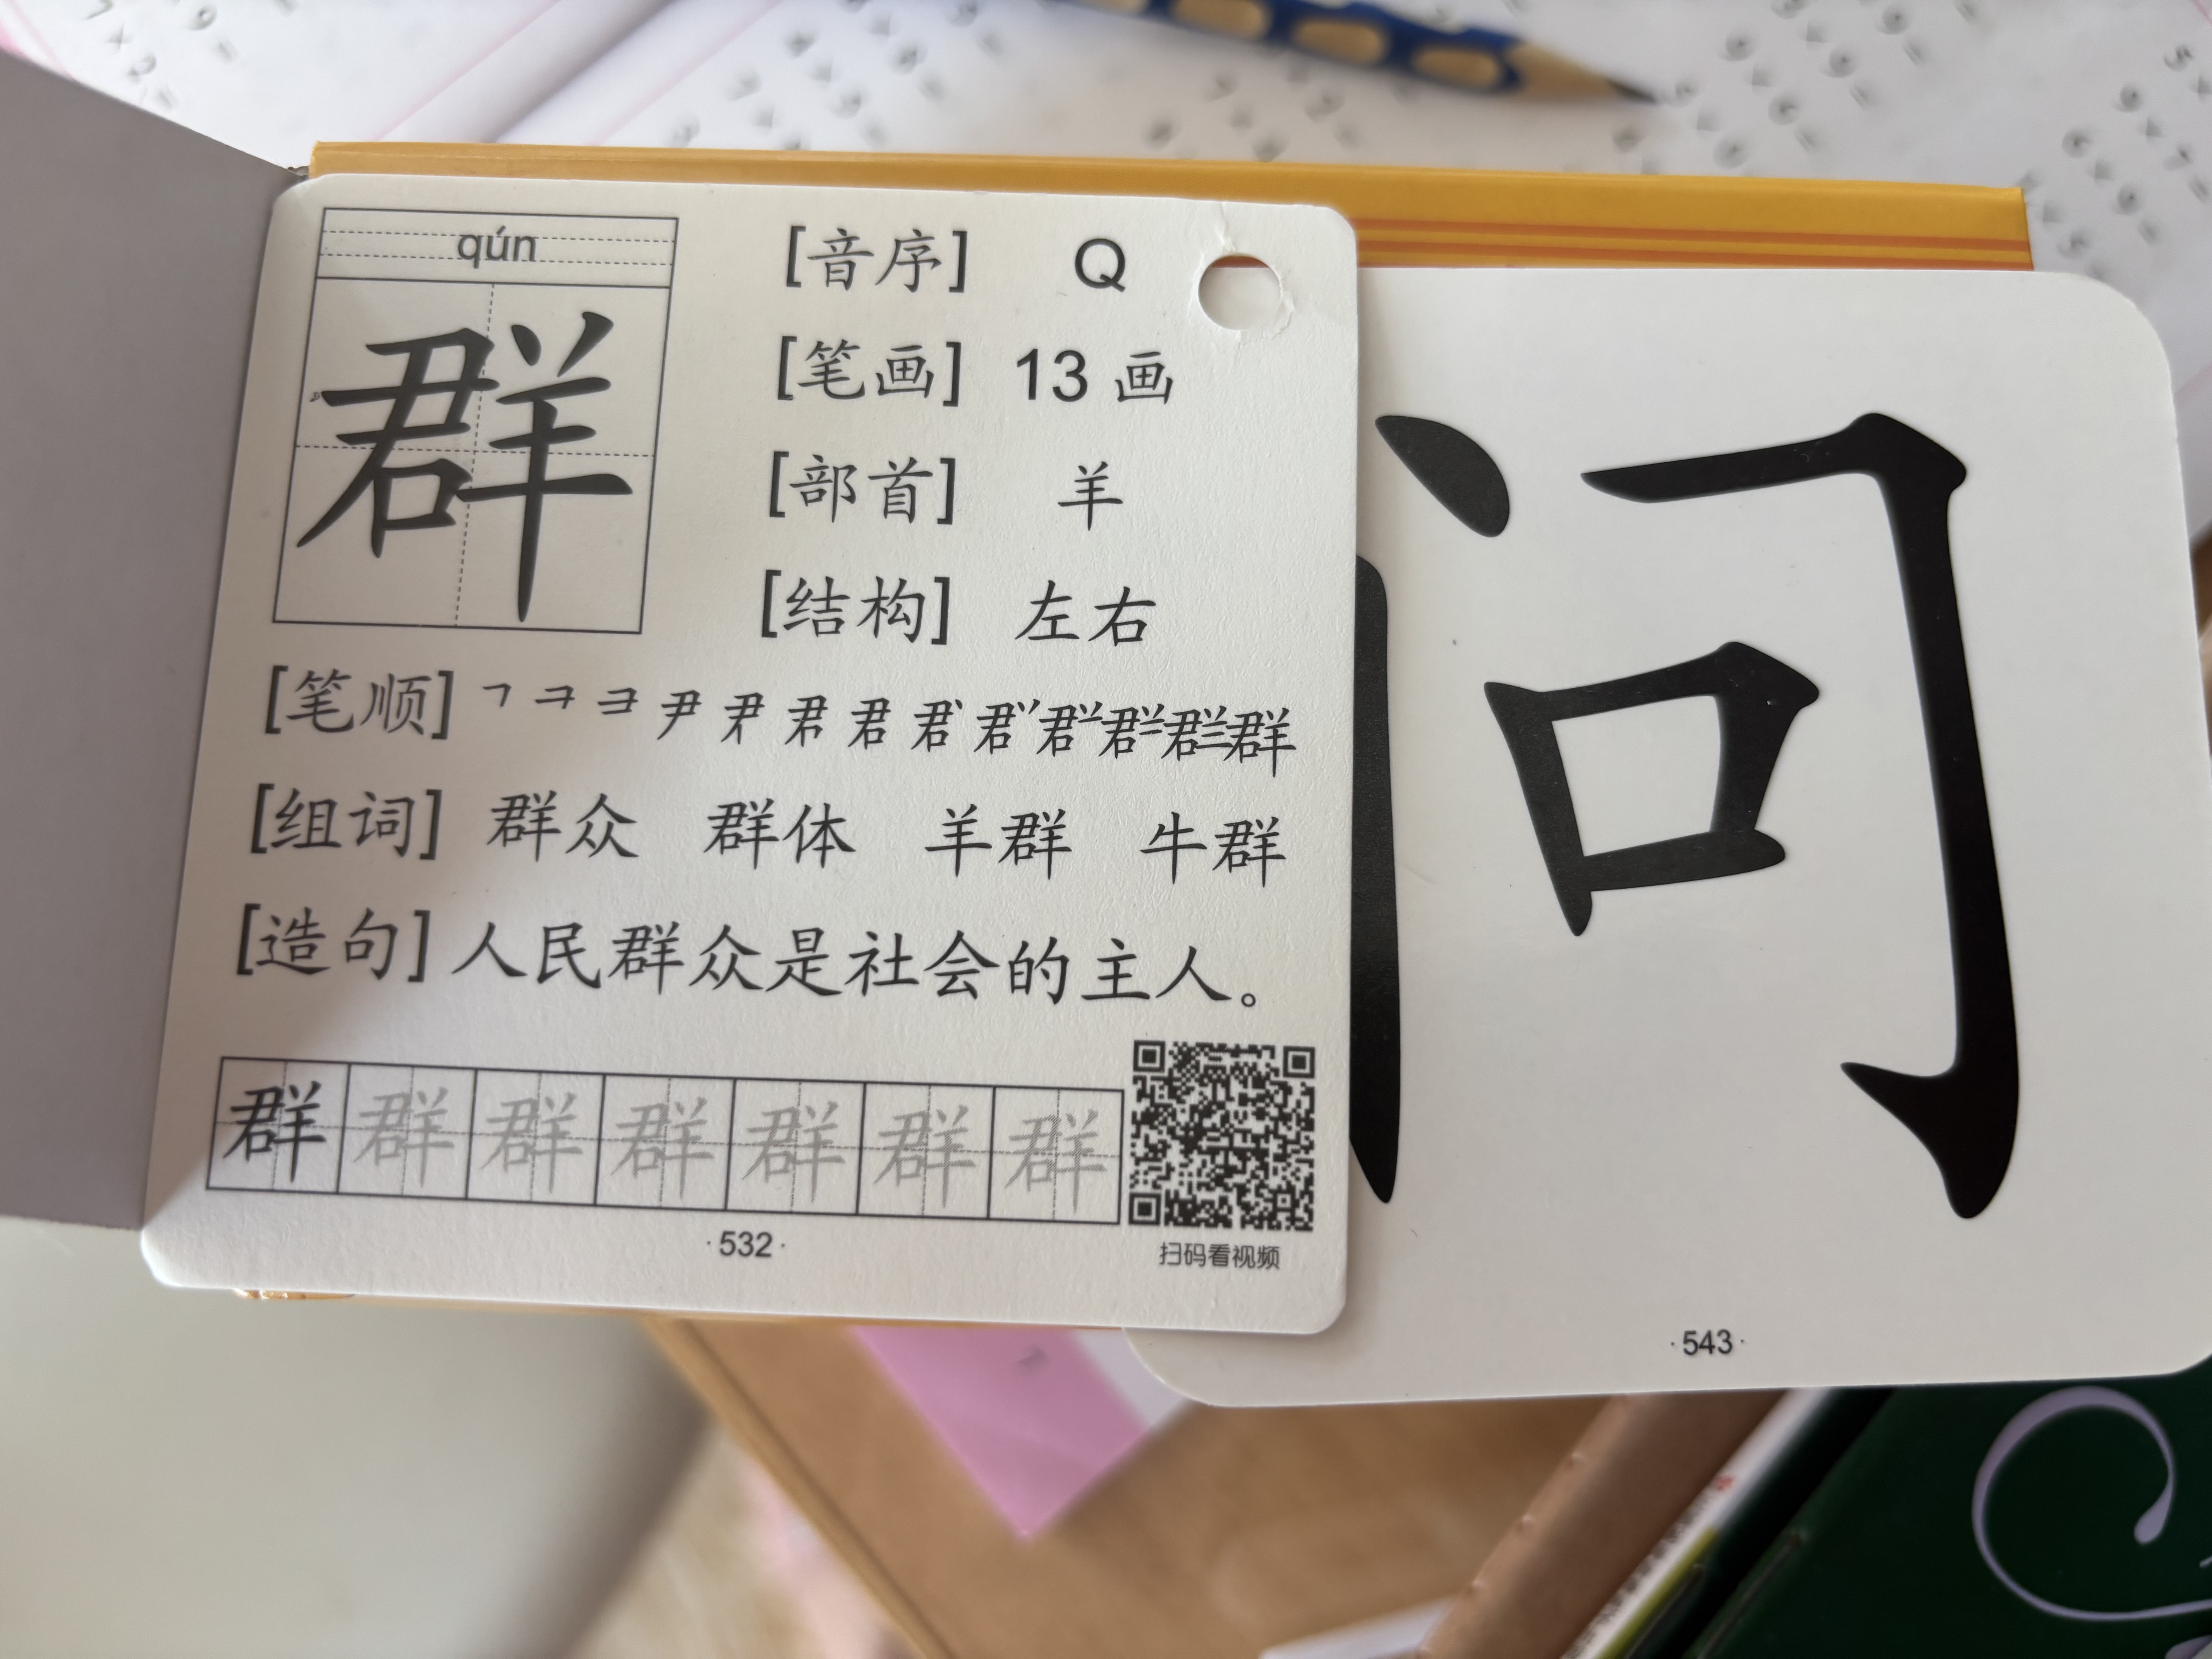 qún
群
[音序] Q
[笔画] 13 画
[部首] 羊
[结构] 左右
[笔顺]
[组词] 群众 群体 羊群 牛群
[造句] 人民群众是社会的主人。
群 群 群 群 群 群 群
扫码看视频
·532·
问
·543·